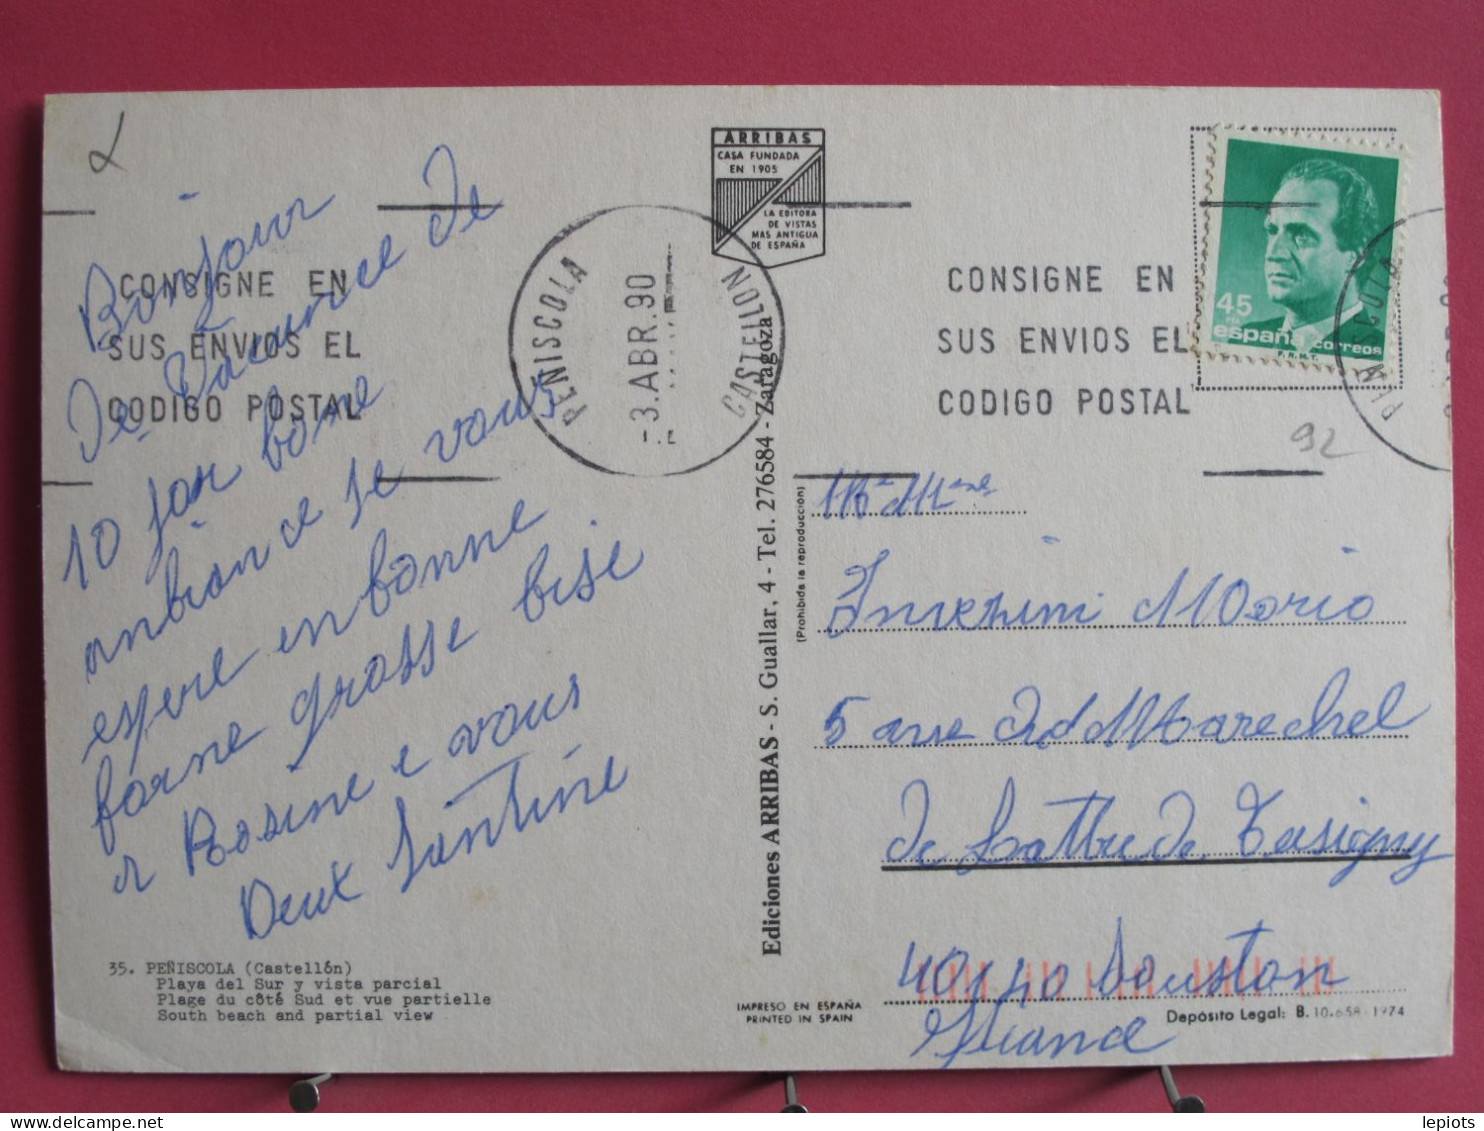 Bonjour
De Vacance de
10 jour bone
anbiance je vous
espere en bonne
forme grosse bise
a Rosine e vous
Deux Santine
CONSIGNE EN
SUS ENVIOS EL
CODIGO POSTAL
PEÑISCOLA
-3.ABR.90
CASTELLON
35. PEÑISCOLA (Castellón)
Playa del Sur y vista parcial
Plage du côté Sud et vue partielle
South beach and partial view
ARRIBAS
CASA FUNDADA
EN 1905
LA EDITORA
DE VISTAS
MAS ANTIGUA
DE ESPAÑA
Ediciones ARRIBAS - S. Guallar, 4 - Tel. 276584 - Zaragoza
(Prohibida la reproducción)
IMPRESO EN ESPAÑA
PRINTED IN SPAIN
CONSIGNE EN
SUS ENVIOS EL
CODIGO POSTAL
45
PTA
españa correos
F.N.M.T.
92
Mr Mme
Invernini Mario
5 Marechel
de Lattre de Tasigny
40140 Souston
Depósito Legal: B. 10.658-1974
lepiots